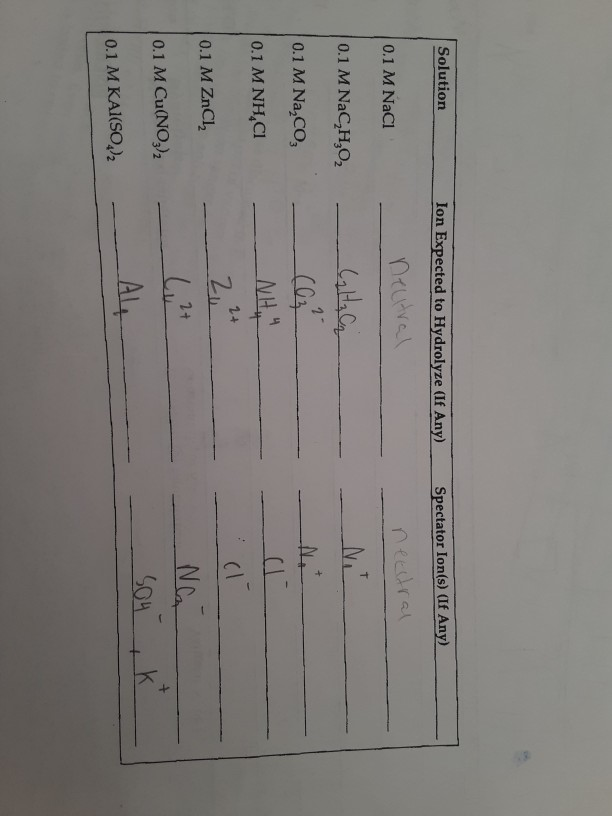 Solution Ion Expected to Hydrolyze (If Any) Spectator Ion(s) (If Any)
0.1 M NaCl neutral neutral
0.1 M NaC₂H₃O₂ C₂H₃O₂ Na⁺
0.1 M Na₂CO₃ CO₃²⁻ Na⁺
0.1 M NH₄Cl NH₄⁴ Cl⁻
0.1 M ZnCl₂ Zn²⁺ Cl⁻
0.1 M Cu(NO₃)₂ Cu²⁺ NO₃⁻
0.1 M KAl(SO₄)₂ SO4⁻, K⁺